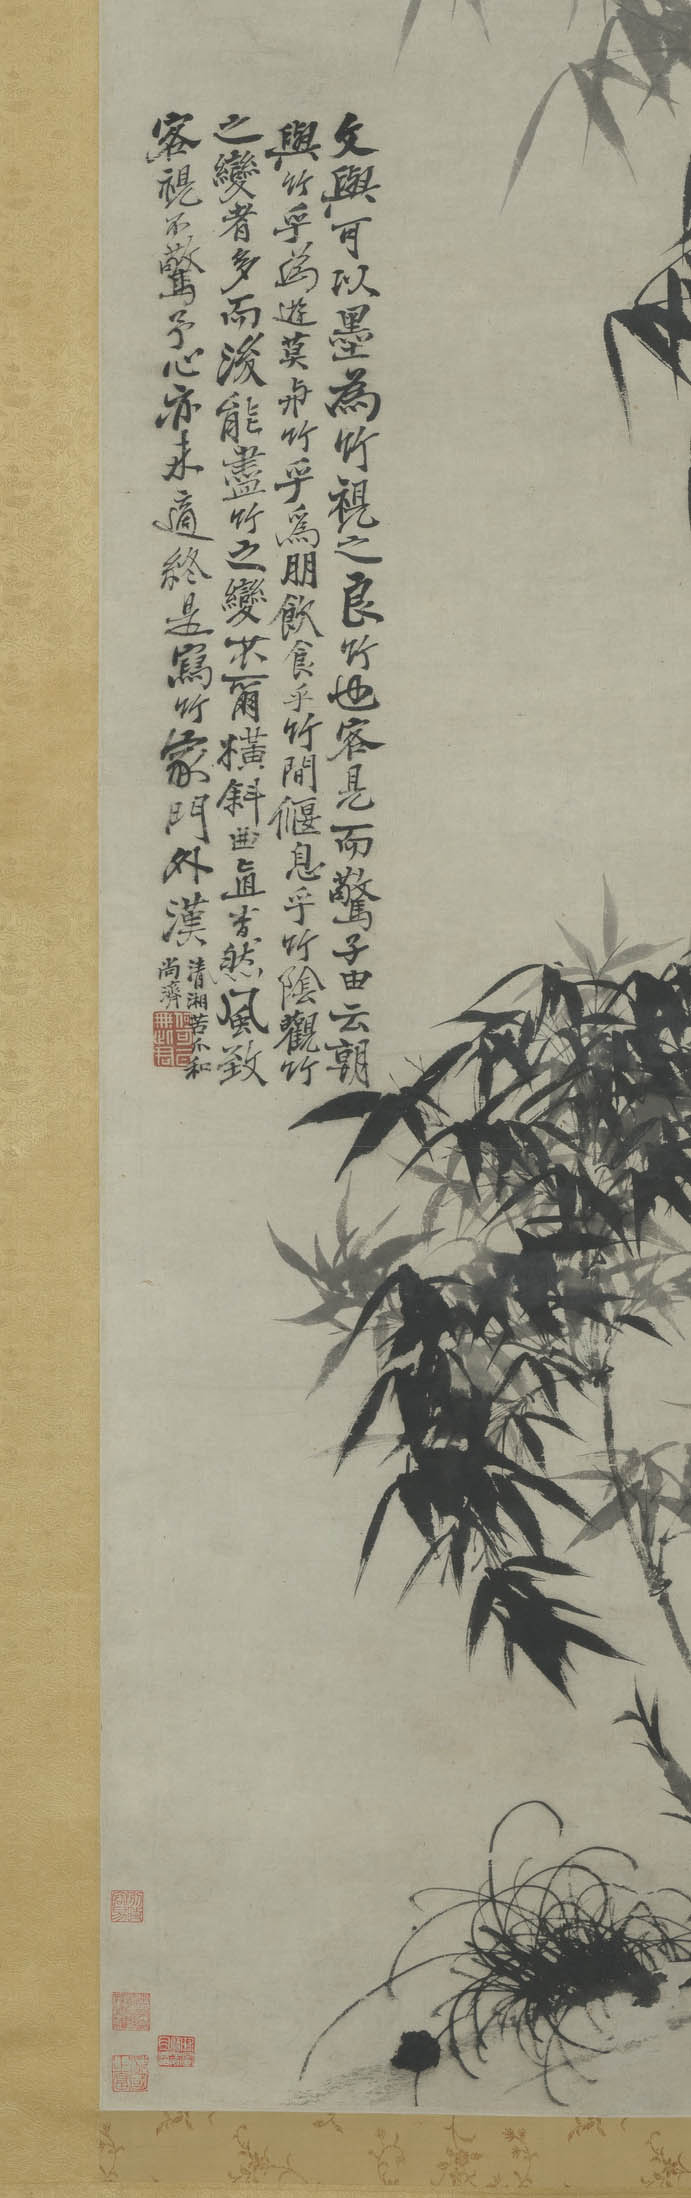 文與可以墨為竹視之良竹也客見而驚子由云朝
與竹乎為遊莫與竹乎為朋飲食乎竹間偃息乎竹陰觀竹
之變者多而後能盡竹之變其爾橫斜曲直杳然風致
客視不驚予心亦未適終是寫竹家門外漢
清湘苦瓜和
尚濟